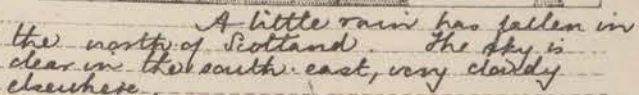 A little rain has fallen in
the north of Scotland. The sky is
clear in the south east, very cloudy
elsewhere.